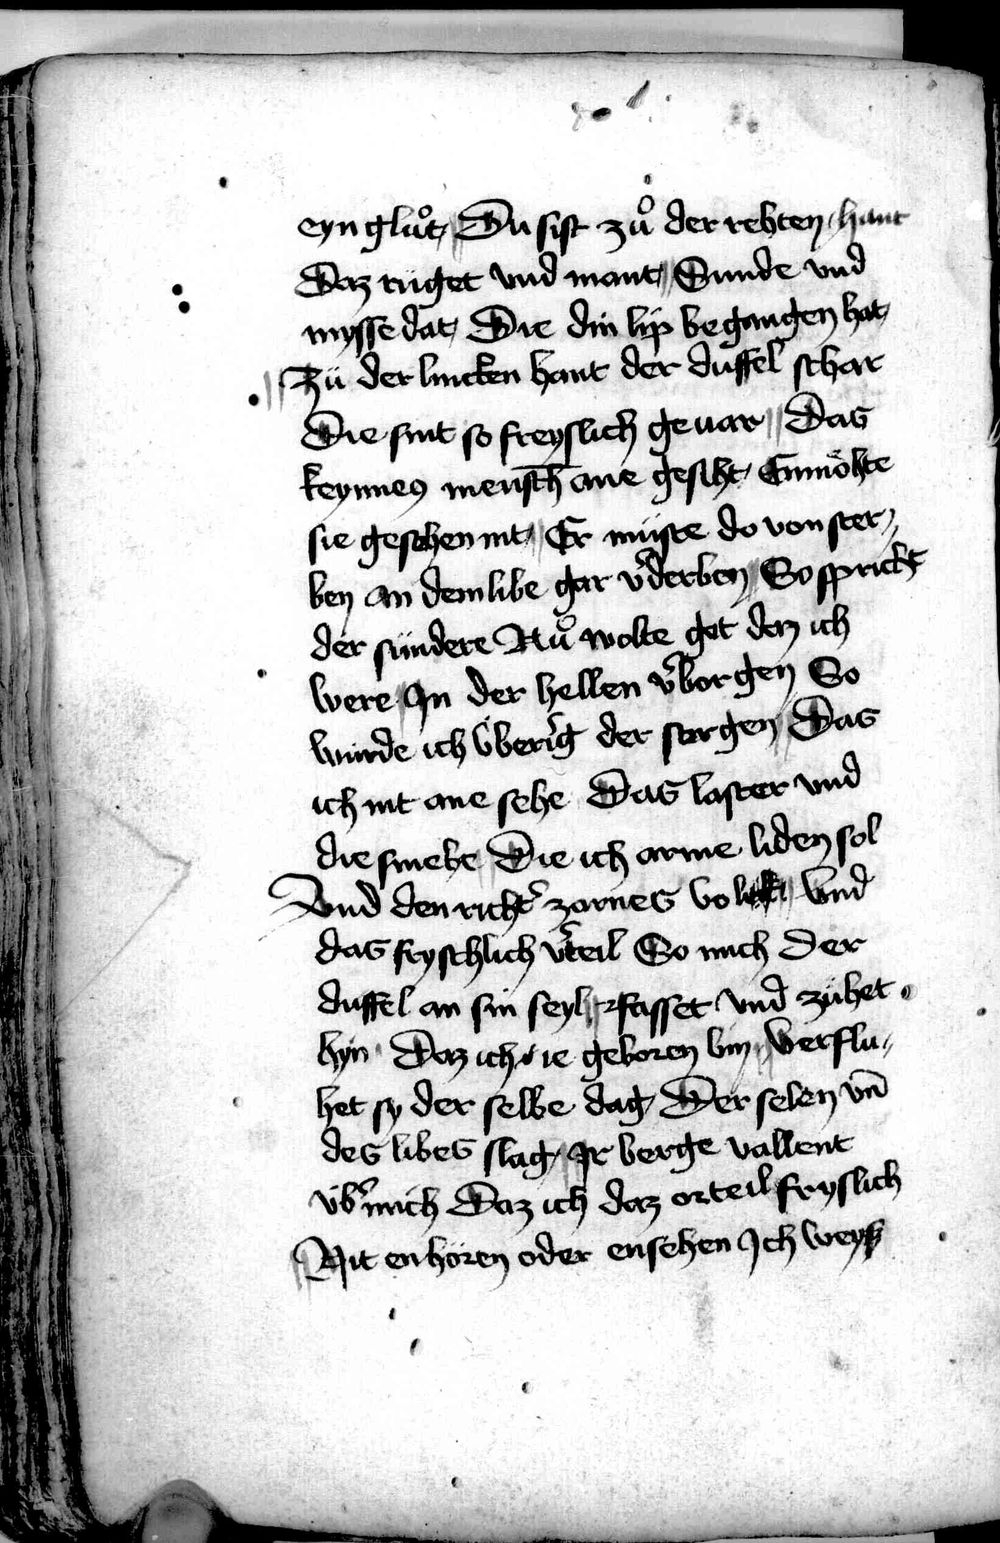 eyn gluͦt / Du sist zuͦ der rehten / hant
Daz rüget vnd mant / Sunde vnd
mysse dat / Die din lip begangen hat /
Zü der lincken hant der duffel schar
Die sint so freyslich geuar / Das
keynnes mensch ane gesiht / Enmöhte
sie gesehen nit / Er müste do von ster /
ben an dem libe gar v̾derben / So spricht
der sündere Nuͦ wolte got daz ich
were / In der hellen v̾borgen So
wurde ich überig der sorgen / Das
ich nit ane sehe Das laster vnd
die smehe / Die ich arme liden sol
Vnd den richt̾ zornes vol / Vnd
das fryschlich vrteil So mich der
duffel an sin seyl / Fasset vnd zühet
hyn Daz ich ie geboren bin / Verflu /
het sy der selbe dag / Der selen vn̄
des libes slag / Ir berge vallent
vb̾ mich Daz ich daz orteil fryslich
Nit enhören oder ensehen Ich weyß